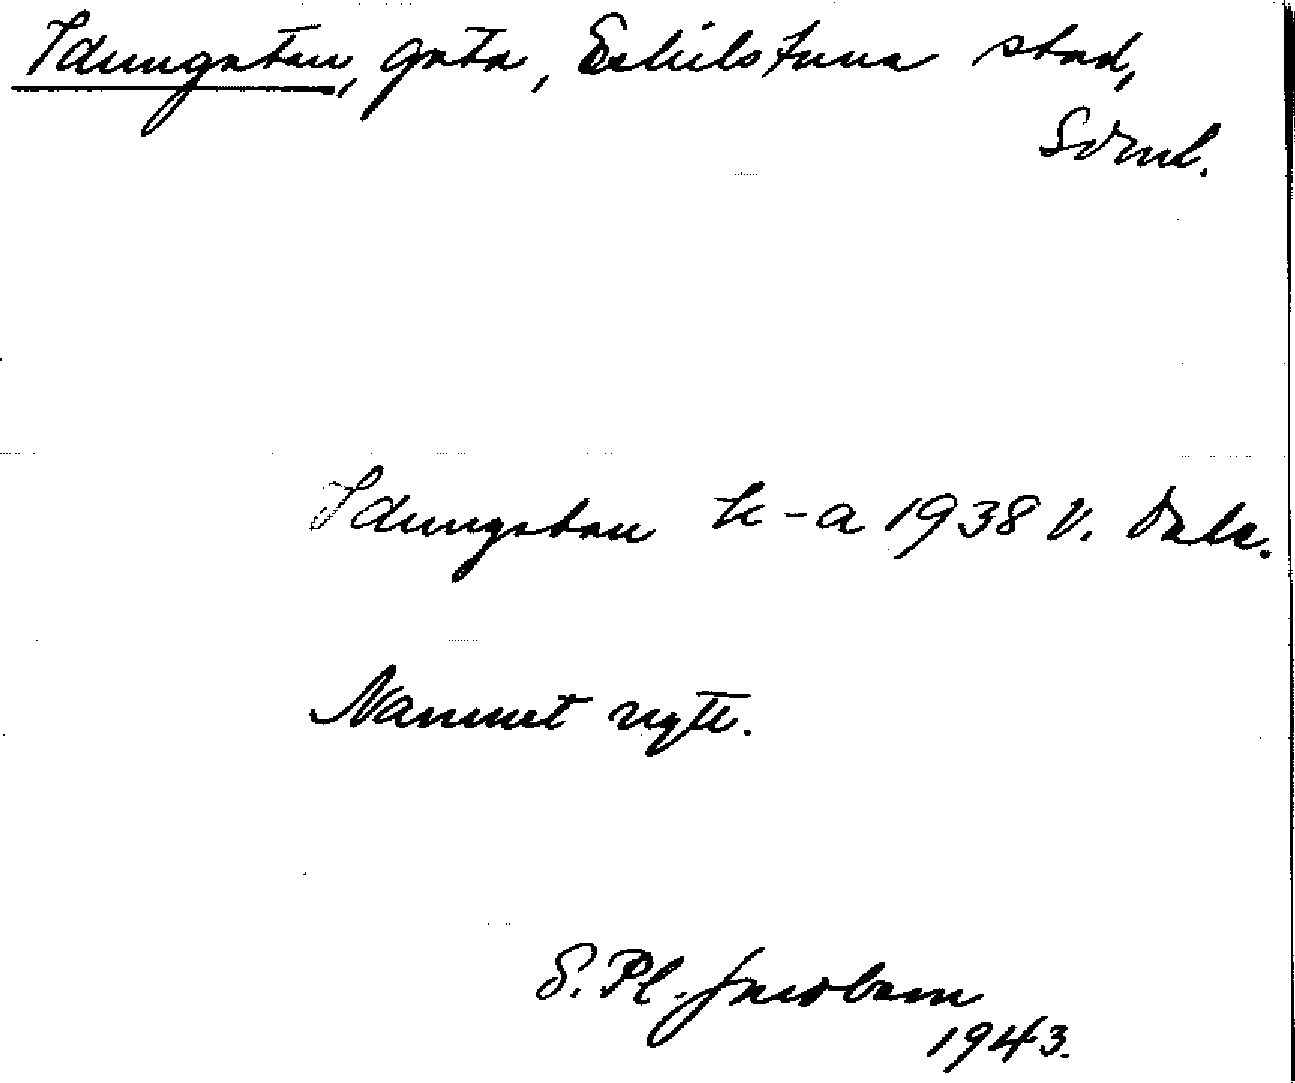 Idungatan, gata, Eskilstuna stad,
Sörml.
Idungatan k-a 1938 V. Dala.
Namnet nytt.
S. Pl. Jacobson
1943.